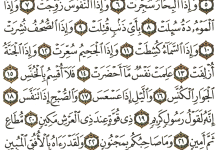 وَإِذَا ٱلْبِحَارُ سُجِّرَتْ ٦ وَإِذَا ٱلنُّفُوسُ زُوِّجَتْ ٧ وَإِذَا
ٱلْمَوْءُۥدَةُ سُئِلَتْ ٨ بِأَىِّ ذَنۢبٍ قُتِلَتْ ٩ وَإِذَا ٱلصُّحُفُ نُشِرَتْ
١٠ وَإِذَا ٱلسَّمَآءُ كُشِطَتْ ١١ وَإِذَا ٱلْجَحِيمُ سُعِّرَتْ ١٢ وَإِذَا ٱلْجَنَّةُ
أُزْلِفَتْ ١٣ عَلِمَتْ نَفْسٌ مَّآ أَحْضَرَتْ ١٤ فَلَآ أُقْسِمُ بِٱلْخُنَّسِ ١٥
ٱلْجَوَارِ ٱلْكُنَّسِ ١٦ وَٱلَّيْلِ إِذَا عَسْعَسَ ١٧ وَٱلصُّبْحِ إِذَا تَنَفَّسَ ١٨
إِنَّهُۥ لَقَوْلُ رَسُولٍ كَرِيمٍ ١٩ ذِى قُوَّةٍ عِندَ ذِى ٱلْعَرْشِ مَكِينٍ ٢٠ مُّطَاعٍ
ثَمَّ أَمِينٍ ٢١ وَمَا صَاحِبُكُم بِمَجْنُونٍ ٢٢ وَلَقَدْ رَءَاهُ بِٱلْأُفُقِ ٱلْمُبِينِ